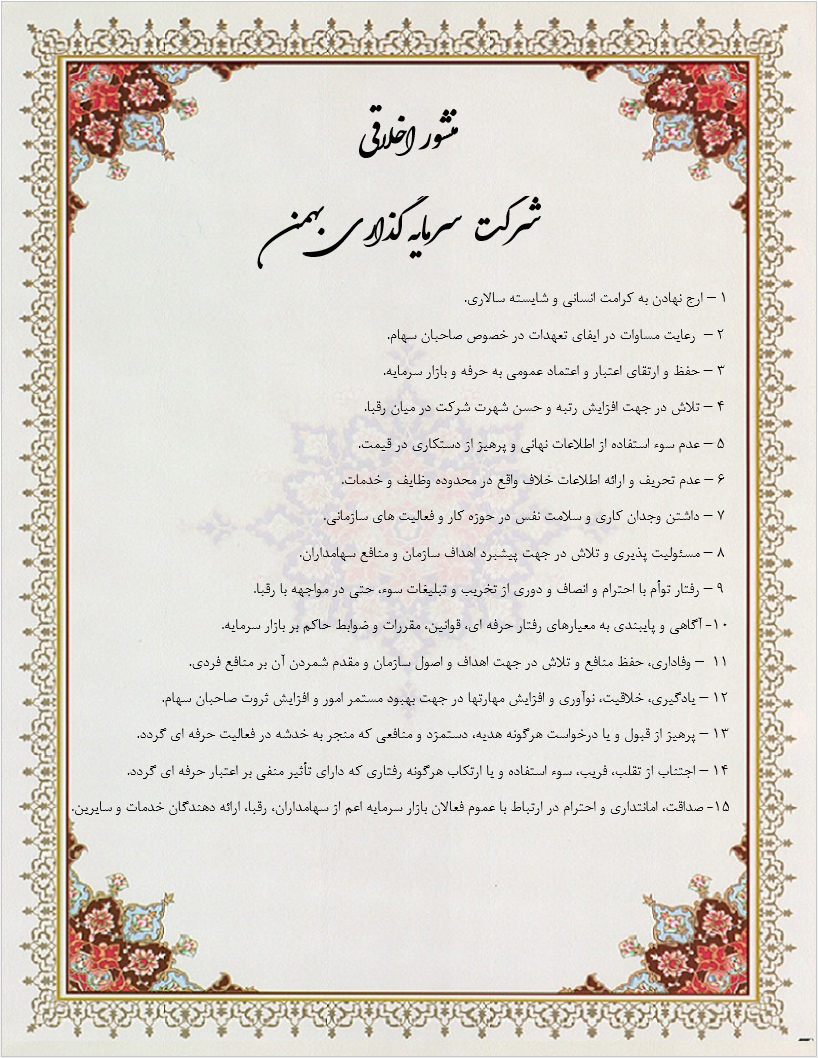 منشور اخلاقی
شرکت سرمایه گذاری بهمن
۱ – ارج نهادن به کرامت انسانی و شایسته سالاری.
۲ – رعایت مساوات در ایفای تعهدات در خصوص صاحبان سهام.
۳ – حفظ و ارتقای اعتبار و اعتماد عمومی به حرفه و بازار سرمایه.
۴ – تلاش در جهت افزایش رتبه و حسن شهرت شرکت در میان رقبا.
۵ – عدم سوء استفاده از اطلاعات نهانی و پرهیز از دستکاری در قیمت.
۶ – عدم تحریف و ارائه اطلاعات خلاف واقع در محدوده وظایف و خدمات.
۷ – داشتن وجدان کاری و سلامت نفس در حوزه کار و فعالیت های سازمانی.
۸ – مسئولیت پذیری و تلاش در جهت پیشبرد اهداف سازمان و منافع سهامداران.
۹ – رفتار توأم با احترام و انصاف و دوری از تخریب و تبلیغات سوء، حتی در مواجهه با رقبا.
۱۰- آگاهی و پایبندی به معیارهای رفتار حرفه ای، قوانین، مقررات و ضوابط حاکم بر بازار سرمایه.
۱۱ – وفاداری، حفظ منافع و تلاش در جهت اهداف و اصول سازمان و مقدم شمردن آن بر منافع فردی.
۱۲ – یادگیری، خلاقیت، نوآوری و افزایش مهارتها در جهت بهبود مستمر امور و افزایش ثروت صاحبان سهام.
۱۳ – پرهیز از قبول و یا درخواست هرگونه هدیه، دستمزد و منافعی که منجر به خدشه در فعالیت حرفه ای گردد.
۱۴ – اجتناب از تقلب، فریب، سوء استفاده و یا ارتکاب هرگونه رفتاری که دارای تأثیر منفی بر اعتبار حرفه ای گردد.
۱۵- صداقت، امانتداری و احترام در ارتباط با عموم فعالان بازار سرمایه اعم از سهامداران، رقبا، ارائه دهندگان خدمات و سایرین.